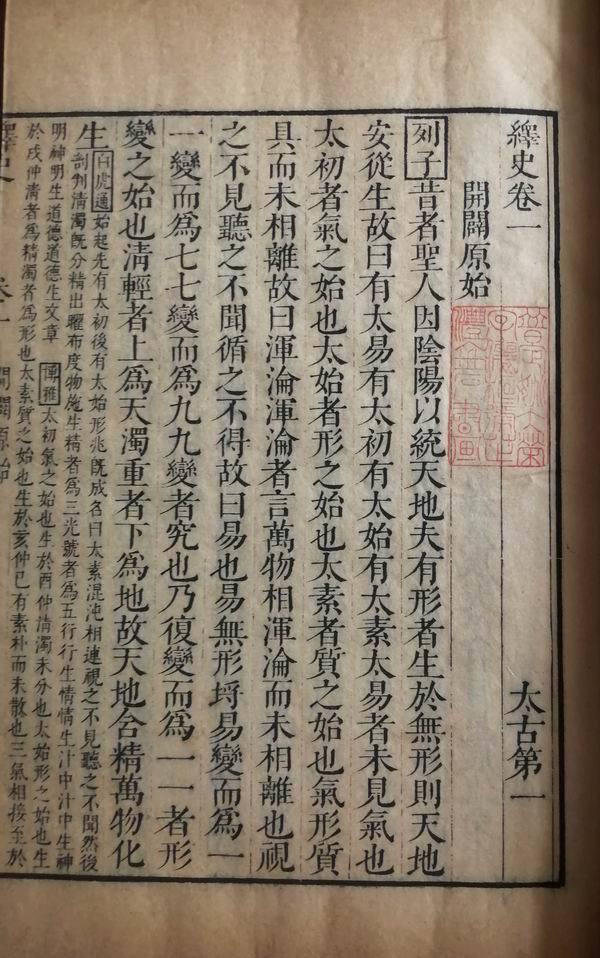 繹史卷一 太古第一
開闢原始
列子昔者聖人因陰陽以統天地夫有形者生於無形則天地
安從生故曰有太易有太初有太始有太素太易者未見氣也
太初者氣之始也太始者形之始也太素者質之始也氣形質
具而未相離故曰渾淪渾淪者言萬物相渾淪而未相離也視
之不見聽之不聞循之不得故曰易也易無形埒易變而爲一
一變而爲七七變而爲九九變者究也乃復變而爲一一者形
變之始也淸輕者上爲天濁重者下爲地故天地含精萬物化
生
白虎通始起先有太初後有太始形兆旣成名曰太素混沌相連視之不見聽之不聞然後
剖判淸濁旣分精出曜布度物施生精者爲三光號者爲五行行生情情生汁中汁中生神
明神明生道德道德生文章 博雅太初氣之始也生於酉仲淸濁未分也太始形之始也生
於戌仲淸者爲精濁者爲形也太素質之始也生於亥仲已有素朴而未散也三氣相接至於